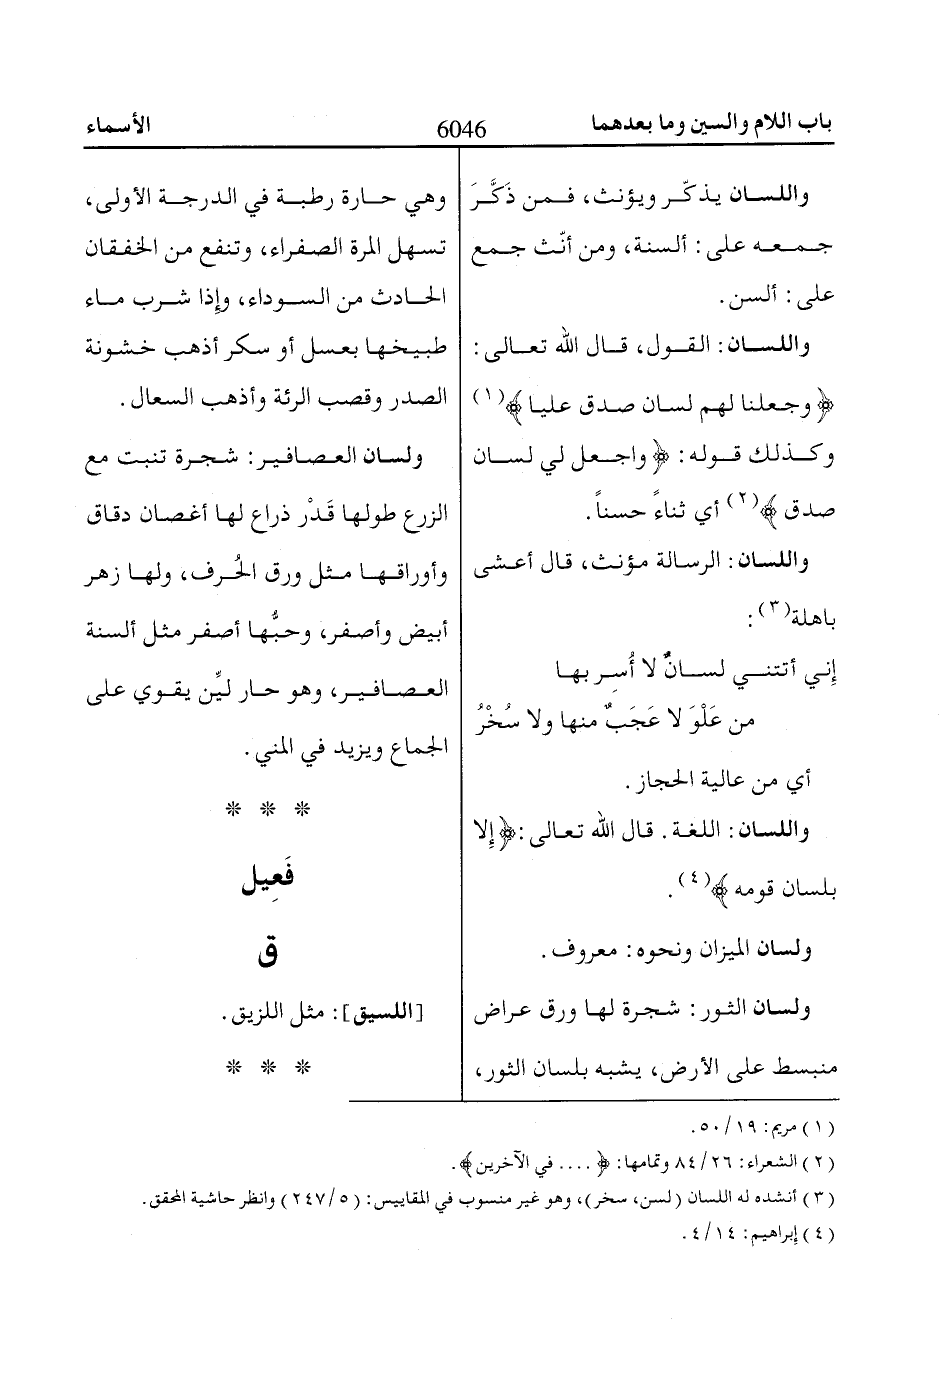 باب اللام والسين وما بعدهما
6046
الأسماء
واللسان يذكّر ويؤنث، فمن ذَكَّرَ
جمعه على: ألسنة، ومن أنّث جمع
على: ألسن.
واللسان: القول، قال الله تعالى:
﴿وجعلنا لهم لسان صدق عليا﴾(١)
وكذلك قوله: ﴿واجعل لي لسان
صدق﴾(٢) أي ثناءً حسناً.
واللسان: الرسالة مؤنث، قال أعشى
باهلة(٣):
إني أتتني لسانٌ لا أُسِر بها
من عَلْوَ لا عَجَبٌ منها ولا سُخْرُ
أي من عالية الحجاز.
واللسان: اللغة. قال الله تعالى: ﴿إلا
بلسان قومه﴾(٤).
ولسان الميزان ونحوه: معروف.
ولسان الثور: شجرة لها ورق عراض
منبسط على الأرض، يشبه بلسان الثور،
وهي حارة رطبة في الدرجة الأولى،
تسهل المرة الصفراء، وتنفع من الخفقان
الحادث من السوداء، وإذا شرب ماء
طبيخها بعسل أو سكر أذهب خشونة
الصدر وقصب الرئة وأذهب السعال.
ولسان العصافير: شجرة تنبت مع
الزرع طولها قَدْر ذراع لها أغصان دقاق
وأوراقها مثل ورق الحُرف، ولها زهر
أبيض وأصفر، وحبُّها أصفر مثل ألسنة
العصافير، وهو حار ليِّن يقوي على
الجماع ويزيد في المني.
* * *
فَعِيل
ق
[اللسيق]: مثل اللزيق.
* * *
(١) مريم: ١٩/ ٥٠.
(٢) الشعراء: ٢٦/ ٨٤ وتمامها: ﴿.... في الآخرين﴾.
(٣) أنشده له اللسان (لسن، سخر)، وهو غير منسوب في المقاييس: (٥/ ٢٤٧) وانظر حاشية المحقق.
(٤) إبراهيم: ١٤/ ٤.